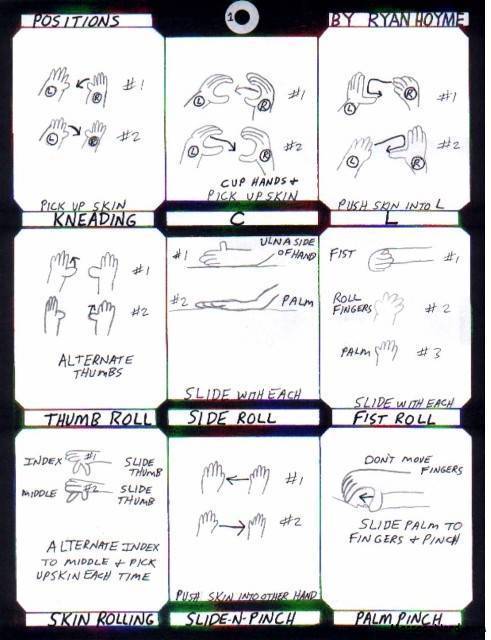 POSITIONS
1
BY RYAN HOYME
L R #1
L R #2
PICK UP SKIN
KNEADING
L R #1
L R #2
CUP HANDS +
PICK UP SKIN
C
L R #1
L R #2
PUSH SKIN INTO L
L
#1
#2
ALTERNATE
THUMBS
THUMB ROLL
#1 ULNA SIDE
OF HAND
#2 PALM
SLIDE WITH EACH
SIDE ROLL
FIST #1
ROLL
FINGERS #2
PALM #3
SLIDE WITH EACH
FIST ROLL
INDEX #1 SLIDE
THUMB
MIDDLE #2 SLIDE
THUMB
ALTERNATE INDEX
TO MIDDLE + PICK
UPSKIN EACH TIME
SKIN ROLLING
#1
#2
PUSH SKIN INTO OTHER HAND
SLIDE-N-PINCH
DON'T MOVE
FINGERS
SLIDE PALM TO
FINGERS + PINCH
PALM PINCH